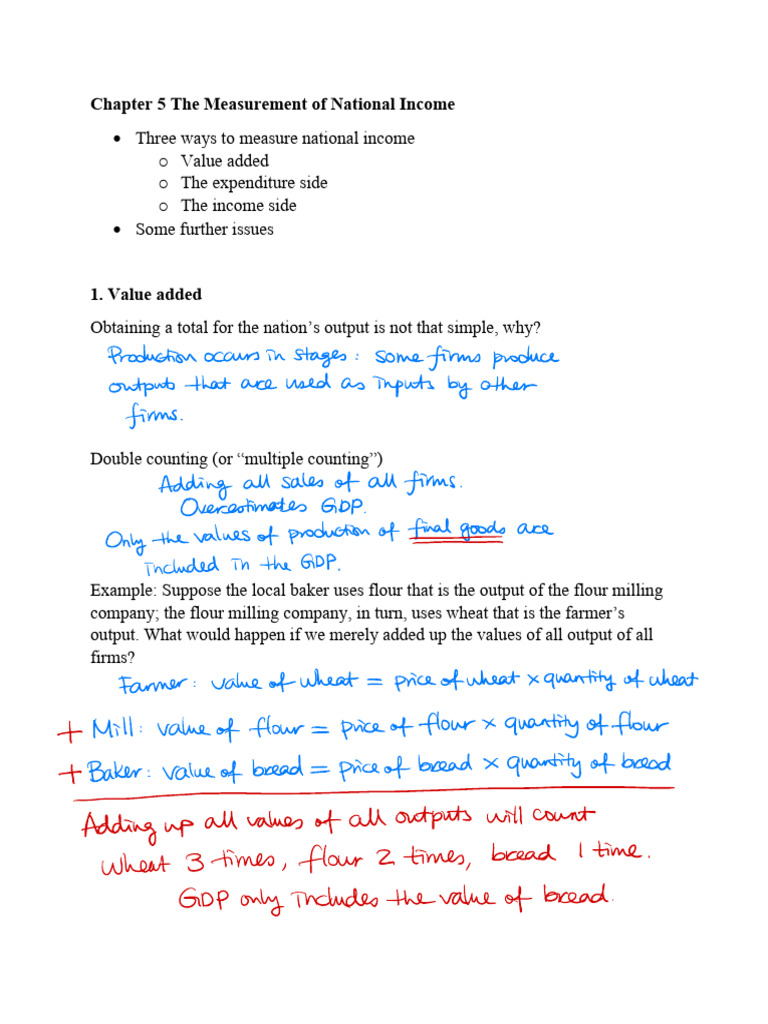 Chapter 5 The Measurement of National Income
• Three ways to measure national income
o Value added
o The expenditure side
o The income side
• Some further issues
1. Value added
Obtaining a total for the nation’s output is not that simple, why?
Production occurs in stages: some firms produce
outputs that are used as inputs by other
firms.
Double counting (or “multiple counting”)
Adding all sales of all firms.
Overestimates GDP.
Only the values of production of final goods are
included in the GDP.
Example: Suppose the local baker uses flour that is the output of the flour milling
company; the flour milling company, in turn, uses wheat that is the farmer’s
output. What would happen if we merely added up the values of all output of all
firms?
Farmer: value of wheat = price of wheat × quantity of wheat
+ Mill: value of flour = price of flour × quantity of flour
+ Baker: value of bread = price of bread × quantity of bread
Adding up all values of all outputs will count
wheat 3 times, flour 2 times, bread 1 time.
GDP only includes the value of bread.